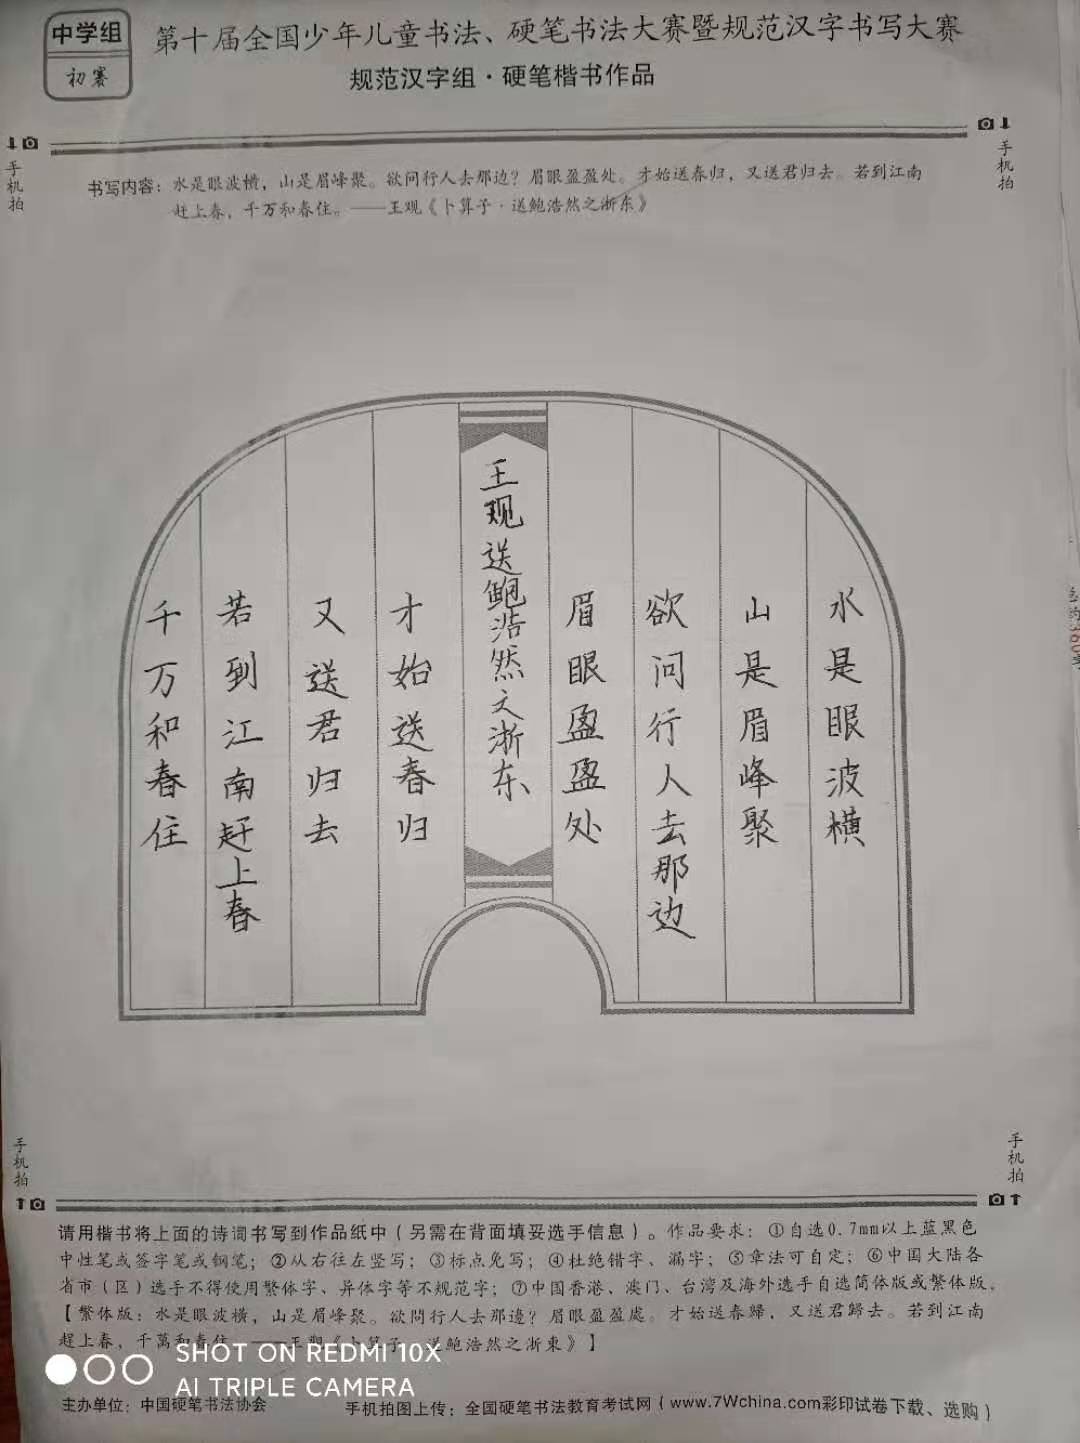 中学组
初赛
第十届全国少年儿童书法、硬笔书法大赛暨规范汉字书写大赛
规范汉字组·硬笔楷书作品
手机拍
手机拍
书写内容：水是眼波横，山是眉峰聚。欲问行人去那边？眉眼盈盈处。才始送春归，又送君归去。若到江南
赶上春，千万和春住。——王观《卜算子·送鲍浩然之浙东》
水是眼波横
山是眉峰聚
欲问行人去那边
眉眼盈盈处
王观送鲍浩然之浙东
才始送春归
又送君归去
若到江南赶上春
千万和春住
手机拍
手机拍
请用楷书将上面的诗词书写到作品纸中（另需在背面填妥选手信息）。作品要求：①自选0.7mm以上蓝黑色
中性笔或签字笔或钢笔；②从右往左竖写；③标点免写；④杜绝错字、漏字；⑤章法可自定；⑥中国大陆各
省市（区）选手不得使用繁体字、异体字等不规范字；⑦中国香港、澳门、台湾及海外选手自选简体版或繁体版。
【繁体版：水是眼波橫，山是眉峰聚。欲問行人去那邊？眉眼盈盈處。才始送春歸，又送君歸去。若到江南
趕上春，千萬和春住。——王觀《卜算子·送鲍浩然之浙東》】
SHOT ON REDMI 10X
AI TRIPLE CAMERA
主办单位：中国硬笔书法协会
手机拍图上传：全国硬笔书法教育考试网（www.7Wchina.com彩印试卷下载、选购）